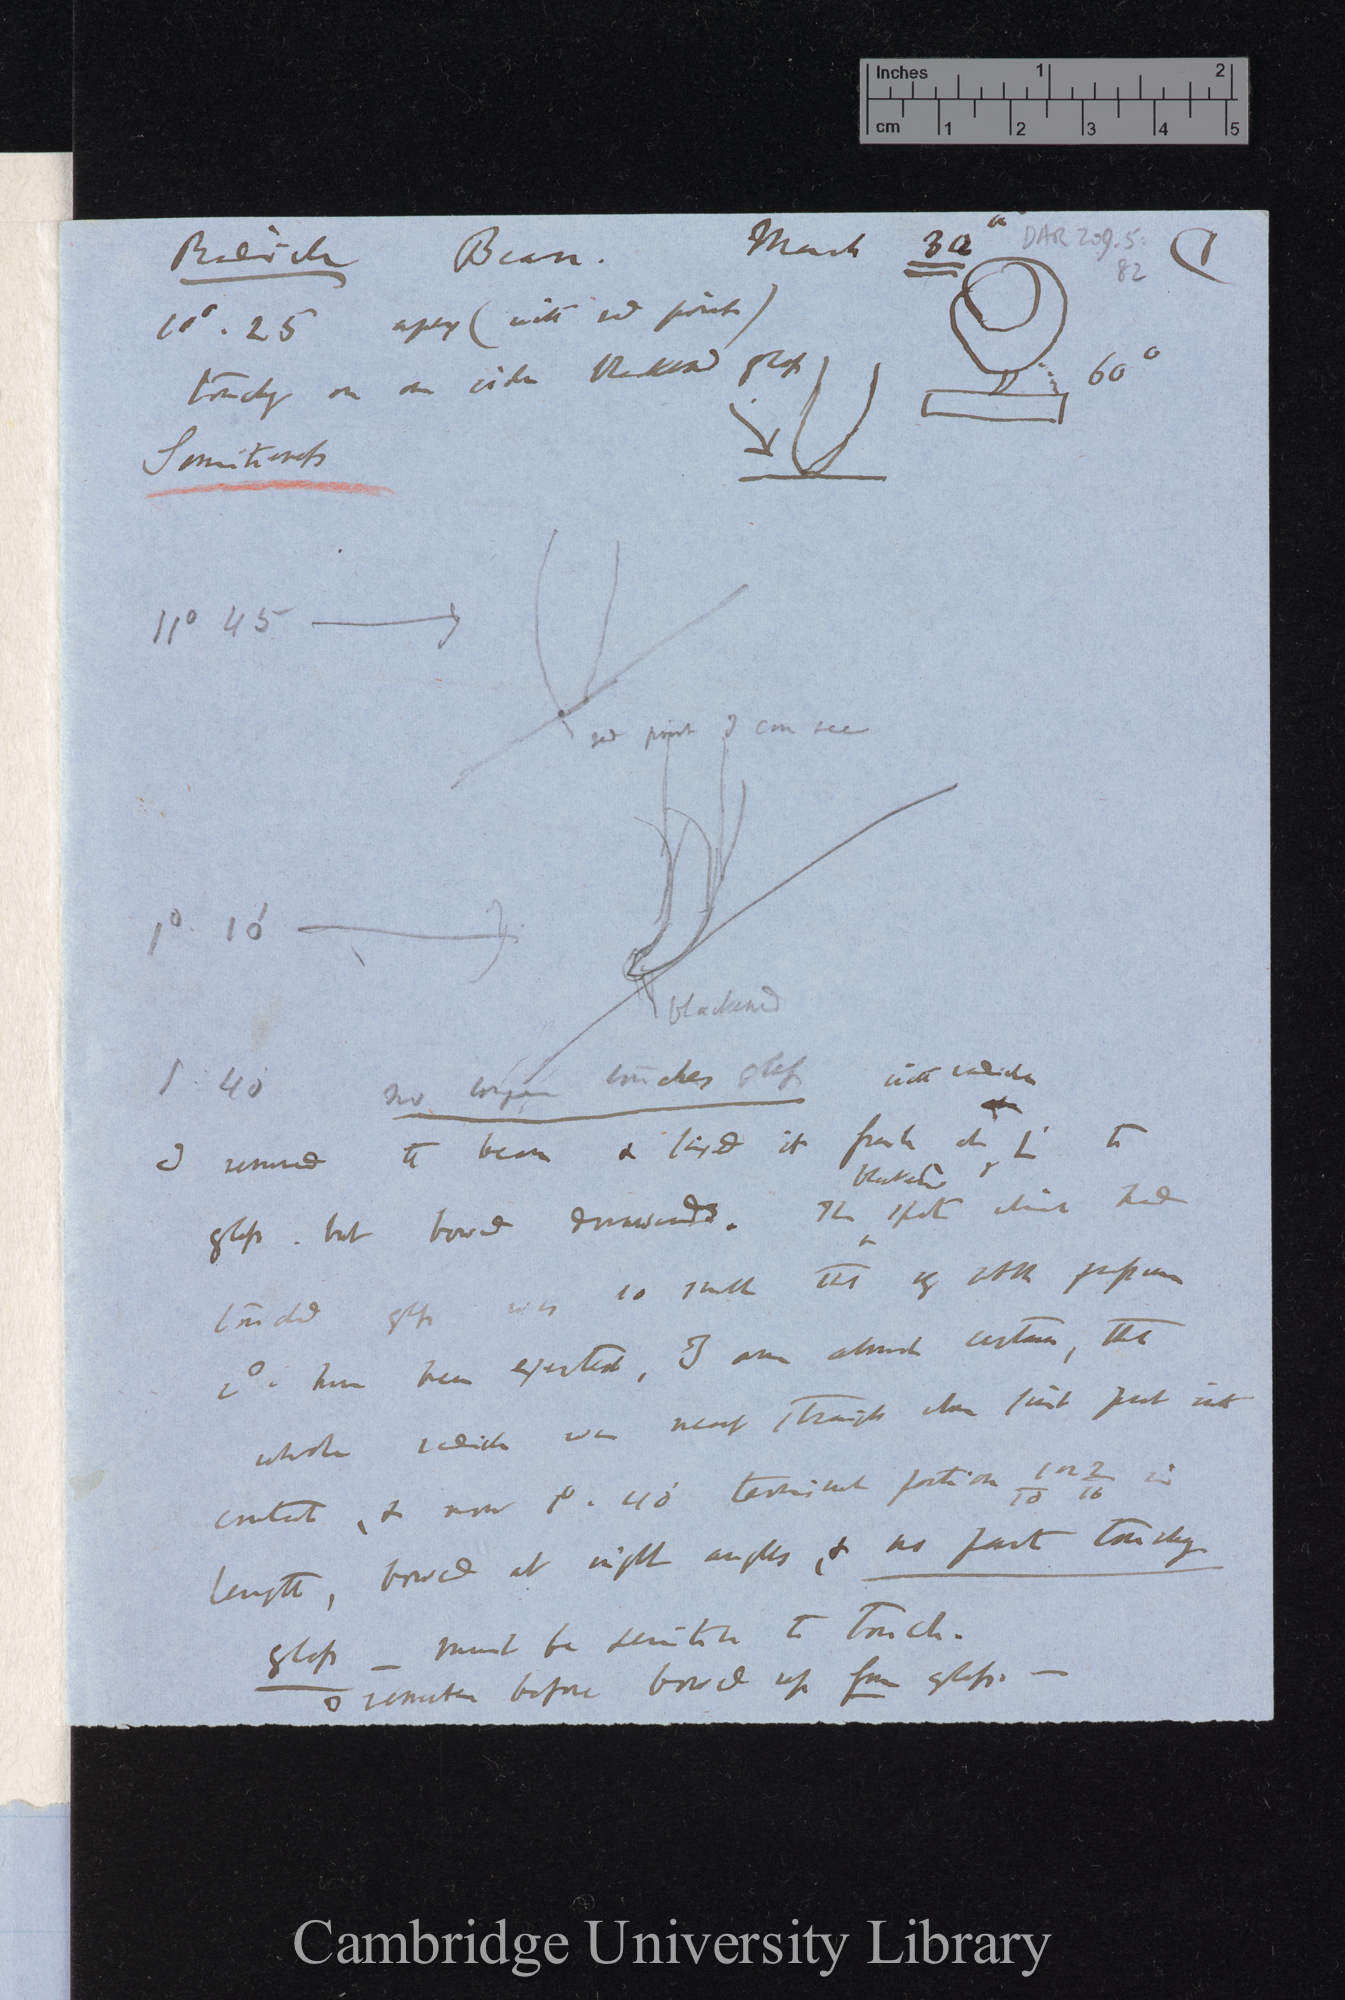 Inches 1 2
cm 1 2 3 4 5
Radicle Bean. March 30th DAR 209.5: 82 (1
10°. 25 apex (with red point)
touching on one side blackened glass 60°
Sensitiveness
11° 45
red point I can see
1° 10'
blackened
1° 40' no longer touches glass with radicle
I removed the bean & fixed it fresh to
glass. but bowed downwards. The blackened spot which had
touched glass was so small that
have been ejected, I am almost certain, that
whole radicle was nearly straight when first put into
contact, & now 1°. 40' terminal portion 1/10 or 2/10 in
length, bowed at right angles, & no part touching
glass — must be sensitive to touch.
before bowed up from glass. —
Cambridge University Library